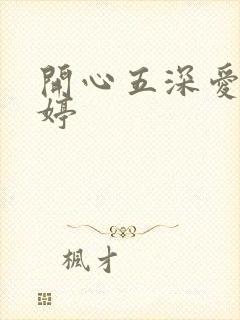 開心五深愛
婷
楓才